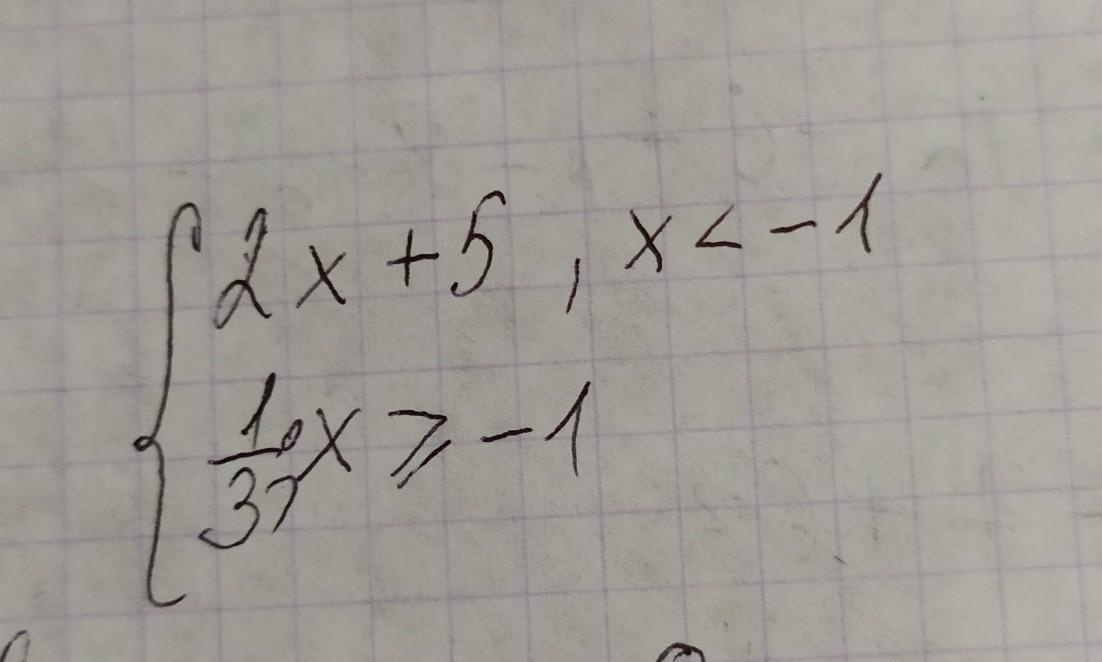 { 2x + 5, x < -1
1/3, x ⩾ -1